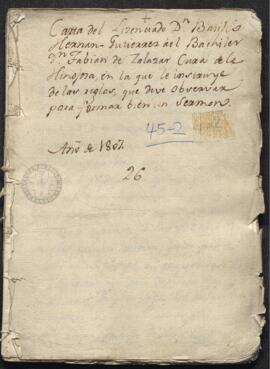 Carta del Licenciado Dn. Bautis
Hernan Gutierrez del Bachiller
Dn. Fabian de Zalazar Cura de la
Hinojosa, en la que le instruye
de las reglas, que deve observar
para formar bien un Sermon.
45-2
Año de 180
26